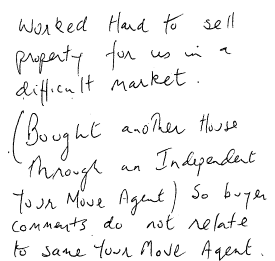 Worked Hard to sell
property for us in a
difficult market.
(Bought another House
through an Independent
Your Move Agent) So buyer
comments do not relate
to same Your Move Agent.